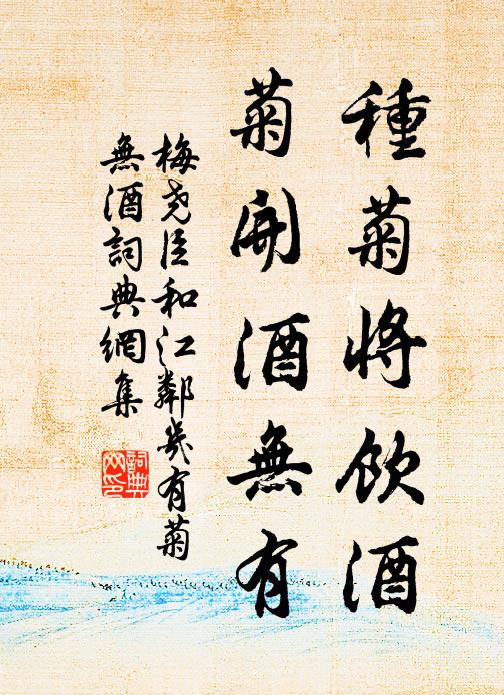 種菊将飲酒
菊開酒無有
梅尭臣和江鄰幾有菊
無酒詞典網集
詞典
网印